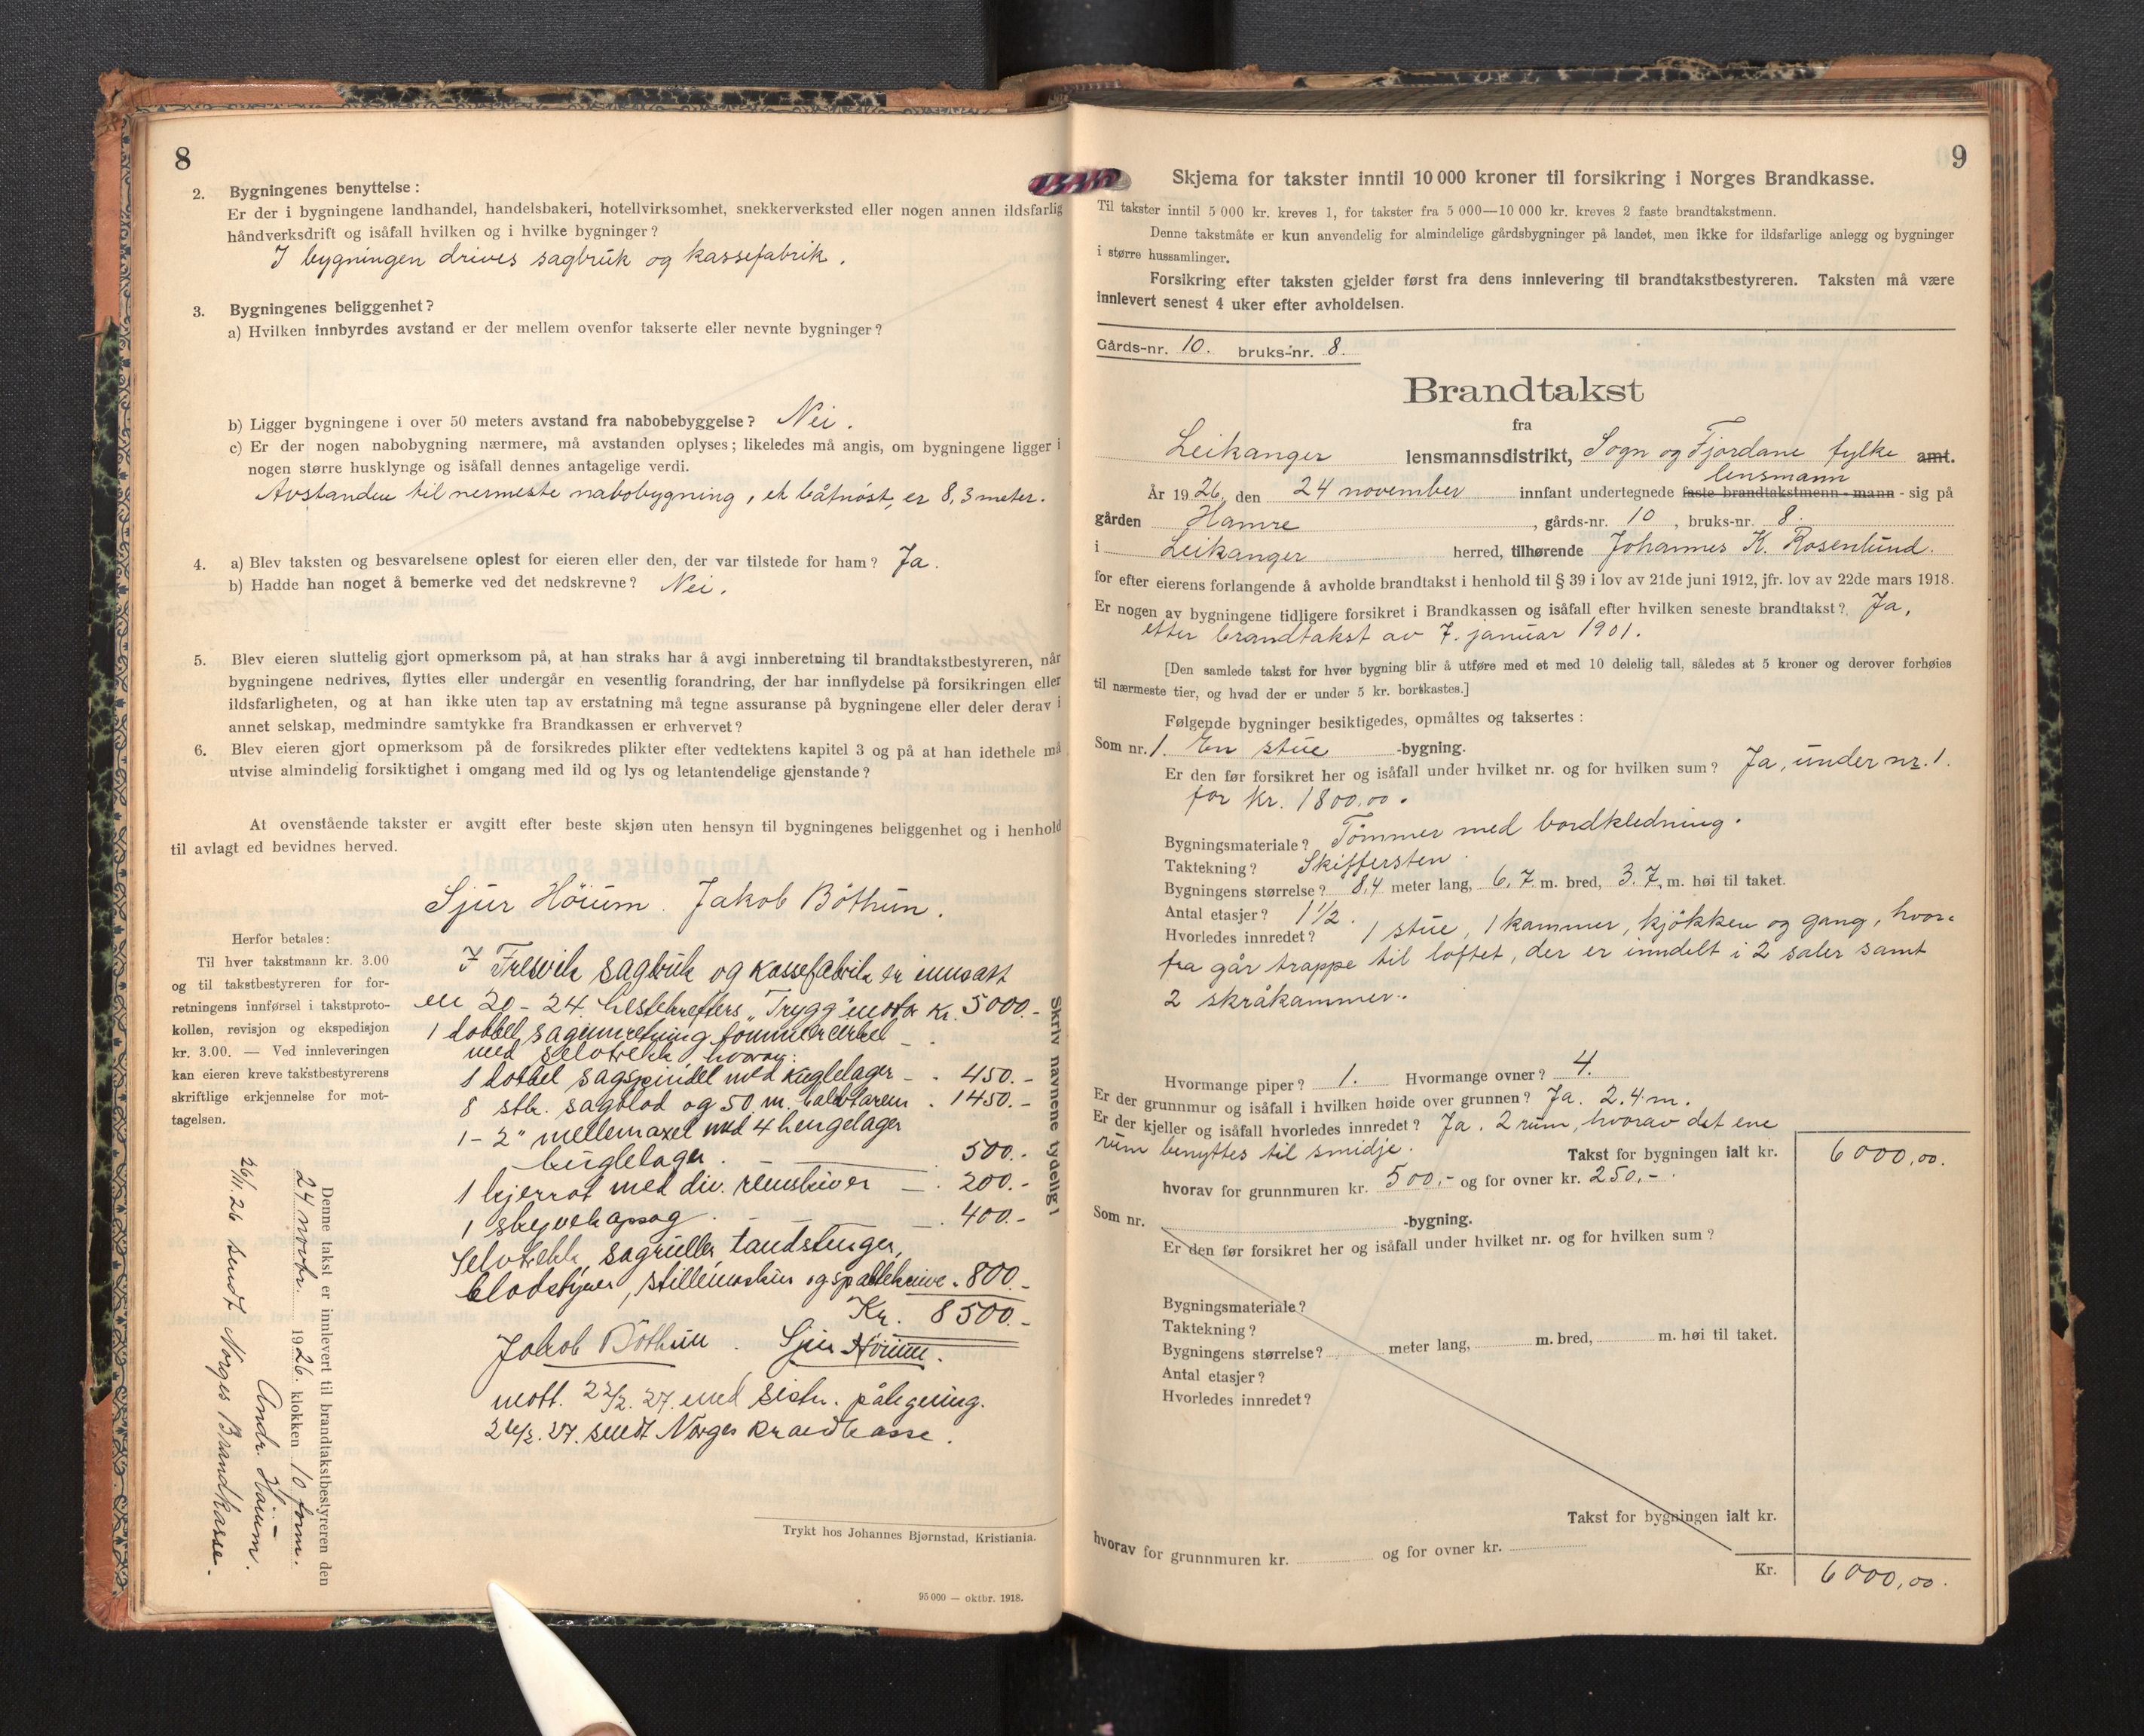 8
2. Bygningenes benyttelse:
Er der i bygningene landhandel, handelsbakeri, hotellvirksomhet, snekkerverksted eller nogen annen ildsfarlig
håndverksdrift og isåfall hvilken og i hvilke bygninger?
I bygningen drives sagbruk og kassefabrik.
3. Bygningenes beliggenhet?
a) Hvilken innbyrdes avstand er der mellem ovenfor takserte eller nevnte bygninger?
b) Ligger bygningene i over 50 meters avstand fra nabobebyggelse? Nei.
c) Er der nogen nabobygning nærmere, må avstanden oplyses; likeledes må angis, om bygningene ligger i
nogen større husklynge og isåfall dennes antagelige verdi.
Avstanden til nermeste nabobygning, et båtnöst, er 8,3 meter.
4. a) Blev taksten og besvarelsene oplest for eieren eller den, der var tilstede for ham? Ja.
b) Hadde han noget å bemerke ved det nedskrevne? Nei.
5. Blev eieren sluttelig gjort opmerksom på, at han straks har å avgi innberetning til brandtakstbestyreren, når
bygningene nedrives, flyttes eller undergår en vesentlig forandring, der har innflydelse på forsikringen eller
ildsfarligheten, og at han ikke uten tap av erstatning må tegne assuranse på bygningene eller deler derav i
annet selskap, medmindre samtykke fra Brandkassen er erhvervet?
6. Blev eieren gjort opmerksom på de forsikredes plikter efter vedtektens kapitel 3 og på at han idethele må
utvise almindelig forsiktighet i omgang med ild og lys og letantendelige gjenstande?
At ovenstående takster er avgitt efter beste skjøn uten hensyn til bygningenes beliggenhet og i henhold
til avlagt ed bevidnes herved.
Sjur Höium. Jakob Böthun.
Herfor betales:
Til hver takstmann kr. 3.00
og til takstbestyreren for for-
retningens innførsel i takstproto-
kollen, revisjon og ekspedisjon
kr. 3.00. — Ved innleveringen
kan eieren kreve takstbestyrerens
skriftlige erkjennelse for mot-
tagelsen.
I sagbruk og kassefabrik er innsatt
en 20-24 hestekrefters "Trygg" motor kr. 5000.-
1 dobbel saginnretning
med selvtrekk hvorav:
1 dobbel sagspindel med kuglelager - . 450.-
8 stk. sagblad og 50 m. . 1450.-
1 - 2" mellemaxel med 4 hengelager
kuglelager . 500.-
1 kjerrat med div. remskiver - . 200.-
1 skyvekapsag . - - . 400.-
Selvtrekk, sagruller, tandstenger,
bladstyrer, og spalteknive . 800.-
Kr. 8500.-
Jakob Böthun . Sjur Höium.
mott. 22/2. 27. med påtegning.
24/2. 27. sendt Norges Brandkasse.
Skriv navnene tydelig!
Denne takst er innlevert til brandtakstbestyreren den
24 novbr. 1926. klokken 10 form.
Andr. Höium.
26/11. 26 sendt Norges Brandkasse.
Trykt hos Johannes Bjørnstad, Kristiania.
95 000 — oktbr. 1918.
9
Skjema for takster inntil 10 000 kroner til forsikring i Norges Brandkasse.
Til takster inntil 5 000 kr. kreves 1, for takster fra 5 000—10 000 kr. kreves 2 faste brandtakstmenn.
Denne takstmåte er kun anvendelig for almindelige gårdsbygninger på landet, men ikke for ildsfarlige anlegg og bygninger
i større hussamlinger.
Forsikring efter taksten gjelder først fra dens innlevering til brandtakstbestyreren. Taksten må være
innlevert senest 4 uker efter avholdelsen.
Gårds-nr. 10. bruks-nr. 8.
Brandtakst
fra
Leikanger lensmannsdistrikt, Sogn og Fjordane fylke amt.
lensmann
År 1926, den 24 november innfant undertegnede faste brandtakstmenn - mann - sig på
gården Hamre, gårds-nr. 10, bruks-nr. 8.
i Leikanger herred, tilhørende Johannes K. Rosenlund.
for efter eierens forlangende å avholde brandtakst i henhold til § 39 i lov av 21de juni 1912, jfr. lov av 22de mars 1918.
Er nogen av bygningene tidligere forsikret i Brandkassen og isåfall efter hvilken seneste brandtakst? Ja,
etter brandtakst av 7. januar 1901.
[Den samlede takst for hver bygning blir å utføre med et med 10 delelig tall, således at 5 kroner og derover forhøies
til nærmeste tier, og hvad der er under 5 kr. bortkastes.]
Følgende bygninger besiktigedes, opmåltes og taksertes:
Som nr. 1. En stue -bygning.
Er den før forsikret her og isåfall under hvilket nr. og for hvilken sum? Ja, under nr. 1.
for kr. 1800,00.
Bygningsmateriale? Tömmer med bordkledning.
Taktekning? Skiffersten.
Bygningens størrelse? 8,4 meter lang, 6,7 m. bred, 3,7 m. høi til taket.
Antal etasjer? 1 1/2.
Hvorledes innredet? 1 stue, 1 kammer, kjökken og gang, hvor-
fra går trappe til loftet, der er inndelt i 2 saler samt
2 skråkammer.
Hvormange piper? 1. Hvormange ovner? 4.
Er der grunnmur og isåfall i hvilken høide over grunnen? Ja. 2.4 m.
Er der kjeller og isåfall hvorledes innredet? Ja. 2 rum, hvorav det ene
rum benyttes til smidje.
Takst for bygningen ialt kr. 6000,00.
hvorav for grunnmuren kr. 500,- og for ovner kr. 250,-.
Som nr. -bygning.
Er den før forsikret her og isåfall under hvilket nr. og for hvilken sum?
Bygningsmateriale?
Taktekning?
Bygningens størrelse? meter lang, m. bred, m. høi til taket.
Antal etasjer?
Hvorledes innredet?
Takst for bygningen ialt kr.
hvorav for grunnmuren kr. og for ovner kr.
Kr. 6000,00.